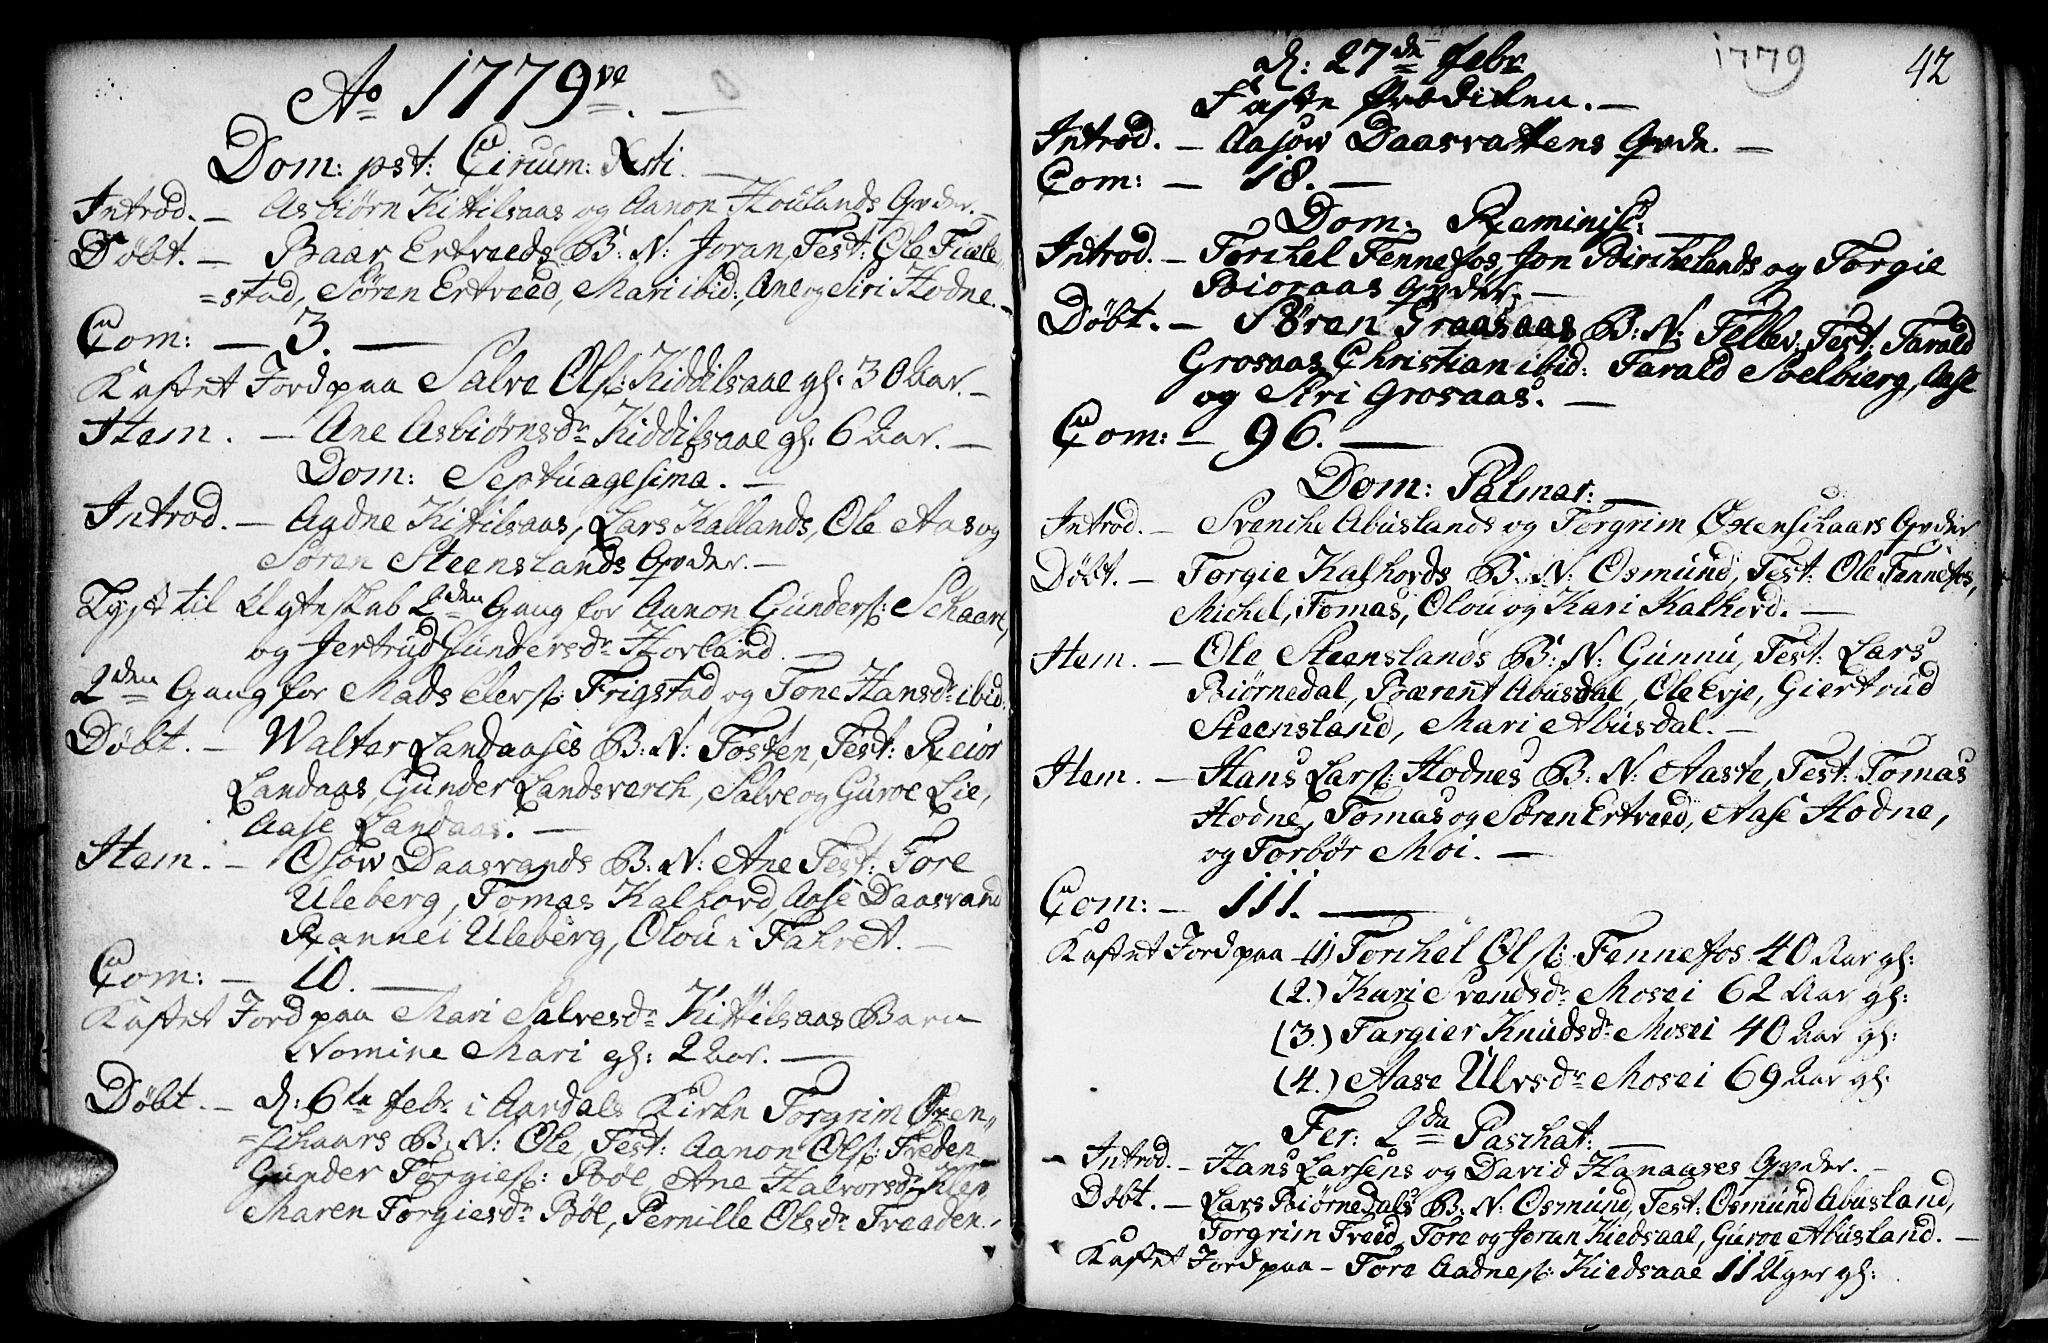 Ao 1779ve. —
Dom: pst: Circum: Xsti. —
Introd. — Asbiørn Kittilsaas og Aanon Houlands Qvder. —
Døbt. — Baar Ertveeds B: N: Joran, Test: Ole
=stad, Søren Ertveed, Mari ibid:, Ane og Siri Hodne. —
Com: — 3. —
Kastet Jord paa Salve Ols: Kiddilsaae gl: 30 Aar. —
Item. — Ane Asbiørnsdr Kiddilsaae gl: 6 Aar. —
Dom: Septuagesima. —
Introd. — Aadne Kittilsaas, Lars Kallands, Ole Aas og
Søren Steenslands Qvder. —
Lyst til Ægteskab 2den Gang for Aanon Gunders: Schaare,
og Jertrud Gundersdr Hovland. —
2den Gang for Mads Elers: Frigstad og Tone Hansdr ibid:
Døbt. — Walter Landaases B: N: Tosten, Test: Reior
Landaas, Gunder Landsverch, Salve og Guroe Lie,
Aase Landaas. —
Item. — Osow Daasvands B: N: Ane Test: Tore
Uleberg, Tomas Kalhovd, Aase Daasvand
Rannei Uleberg, Olou i Fahret. —
Com: — 10. —
Kastet Jord paa Mari Salvesdr Kittilsaas Barn
Nomine Mari gl: 2 Aar. —
Døbt. — d: 6te Febr i Aardals Kirke Torgrim Øxen=
=schaars B: N: Ole, Test: Aanon Ols: Treden
Gunder Torgies: Bøe, Ane Halvorsdr
Maren Torgiesdr Bøe, Pernille Olsdr Treaden.
1779 42
d: 27de Febr
Faste Prædiken. —
Introd. — Aasow Daasvattens Qvde. —
Com: — 18. —
Dom: Reminisc: —
Introd. — Torchel Fennefos, Jon Birchelands og Torgie
Bioraas Qvder. —
Døbt. — Søren Graasaas B: N: Tellev: Test: Tarald
Grosaas, Christian ibid: Tarald Soelbierg, Aase
og Siri Grosaas. —
Com: — 96. —
Dom: Palmar: —
Introd. — Svenche Abuslands og Torgrim Øxenschaars Qvder
Døbt. — Torgie Kalhovds B: N: Osmund, Test: Ole Fennefos,
Michel, Tomas, Olou og Kari Kalhovd. —
Item. — Ole Steenslands B: N: Gunnu, Test: Lars
Biørnedal, Bærent Abusdal, Ole Evje, Giertrud
Steensland, Mari Abusdal. —
Item. — Hans Lars: Hodnes B: N: Aaste, Test: Tomas
Hodne, Tomas og Søren Ertveed, Aase Hodne,
og Torbør Moi. —
Com: — 111. —
Kastet Jord paa (1) Torchel Ols: Fennefos 40 Aar gl:
(2.) Kari Svendsdr Mosei 62 Aar gl:
(3.) Targier Knudsdr Mosei 40 Aar gl:
(4.) Aase Ulvsdr Mosei 69 Aar gl:
Fer: 2da Paschat: —
Introd. — Hans Larsens og David Hanaases Qvder. —
Døbt. — Lars Biørnedals B: N: Osmund, Test: Osmund Abusland,
Torgrim Treed, Tore og Joran Kiedsaae, Guroe Abusland. —
Kastet Jord paa — Tore Aadnes: Kiedsaae 11 Uger gl: